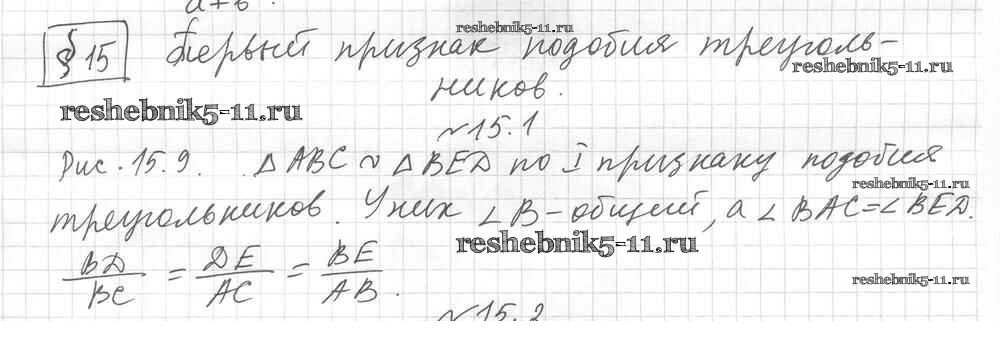 a+b.
reshebnik5-11.ru
§ 15 Первый признак подобия треуголь-
reshebnik5-11.ru
ников.
reshebnik5-11.ru
№15.1
Рис. 15.9. △ABC ~ △BED по I признаку подобия
reshebnik5-11.ru
треугольников. У них ∠B-общий, а ∠BAC=∠BED.
reshebnik5-11.ru
BD/BC = DE/AC = BE/AB.
reshebnik5-11.ru
№15.2